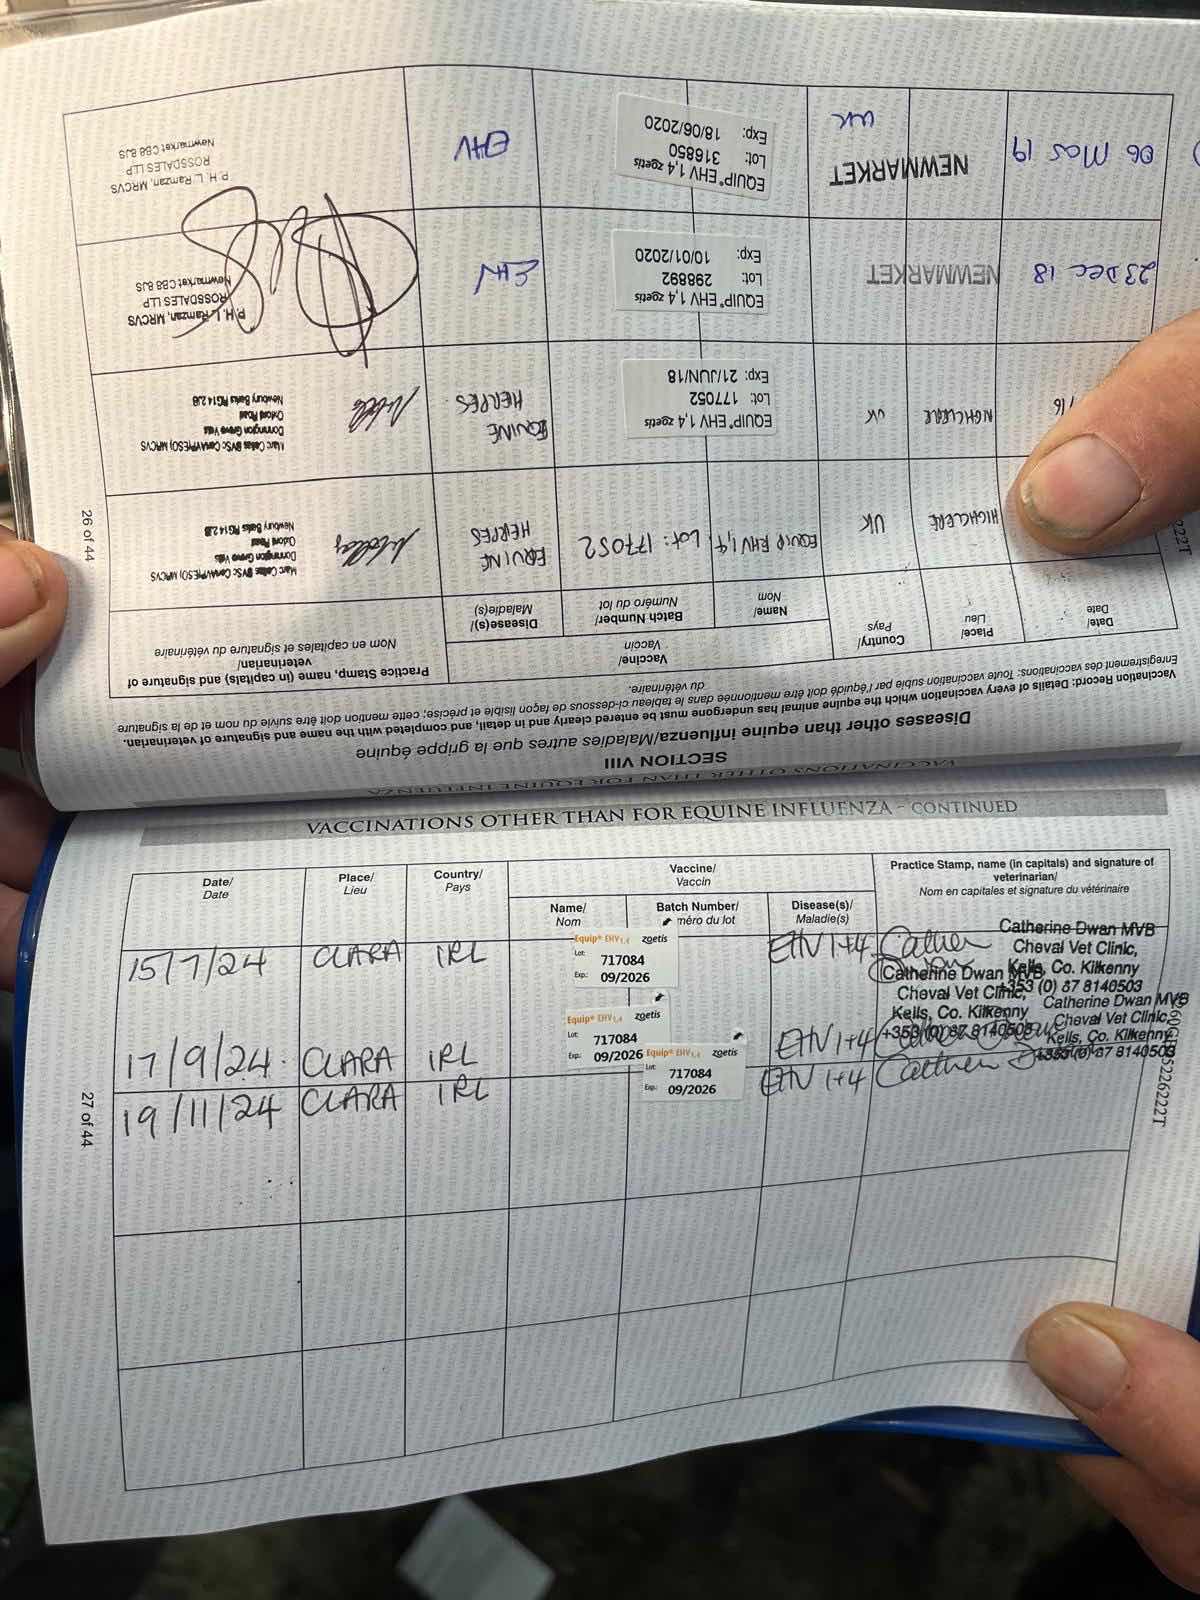 SECTION VIII
Diseases other than equine influenza/Maladies autres que la grippe équine
Vaccination Record: Details of every vaccination which the equine animal has undergone must be entered clearly and in detail, and completed with the name and signature of veterinarian.
Enregistrement des vaccinations: Toute vaccination subie par l'équidé doit être mentionnée dans le tableau ci-dessous de façon lisible et précise; cette mention doit être suivie du nom et de la signature
du vétérinaire.
Date/
Date
Place/
Lieu
Country/
Pays
Vaccine/
Vaccin
Name/
Nom
Batch Number/
Numéro du lot
Disease(s)/
Maladie(s)
Practice Stamp, name (in capitals) and signature of
veterinarian/
Nom en capitales et signature du vétérinaire
HIGHCLERE
UK
EQUIP EHV 1,4
Lot: 177052
EQUINE
HERPES
Marc
BVSc CertAVP(ESO) MRCVS
Donnington Grove Vets
Oxford Road
Newbury Berks RG14 2JB
/16
HIGHCLERE
UK
EQUIP® EHV 1,4 zoetis
Lot: 177052
Exp: 21/JUN/18
EQUINE
HERPES
Marc
BVSc CertAVP(ESO) MRCVS
Donnington Grove Vets
Oxford Road
Newbury Berks RG14 2JB
23 Dec 18
NEWMARKET
EQUIP® EHV 1,4 zoetis
Lot: 298892
Exp: 10/01/2020
EHV
P. H. L. Ramzan, MRCVS
ROSSDALES LLP
Newmarket CB8 8JS
06 Mar 19
NEWMARKET
UK
EQUIP® EHV 1,4 zoetis
Lot: 316850
Exp: 18/06/2020
EHV
P. H. L. Ramzan, MRCVS
ROSSDALES LLP
Newmarket CB8 8JS
26 of 44
222T
VACCINATIONS OTHER THAN FOR EQUINE INFLUENZA
VACCINATIONS OTHER THAN FOR EQUINE INFLUENZA - CONTINUED
Date/
Date
Place/
Lieu
Country/
Pays
Vaccine/
Vaccin
Name/
Nom
Batch Number/
méro du lot
Disease(s)/
Maladie(s)
Practice Stamp, name (in capitals) and signature of
veterinarian/
Nom en capitales et signature du vétérinaire
15/7/24
CLARA
IRL
Equip® EHV1,4 zoetis
Lot: 717084
Exp: 09/2026
EHV 1+4
Catherine Dwan MVB
Cheval Vet Clinic,
Kells, Co. Kilkenny
+353 (0) 87 8140503
17/9/24
CLARA
IRL
Equip® EHV1,4 zoetis
Lot: 717084
Exp: 09/2026
EHV 1+4
Catherine Dwan MVB
Cheval Vet Clinic,
Kells, Co. Kilkenny
+353 (0) 87 8140503
19/11/24
CLARA
IRL
Equip® EHV1,4 zoetis
Lot: 717084
Exp: 09/2026
EHV 1+4
Catherine Dwan MVB
Cheval Vet Clinic,
Kells, Co. Kilkenny
+353 (0) 87 8140503
27 of 44